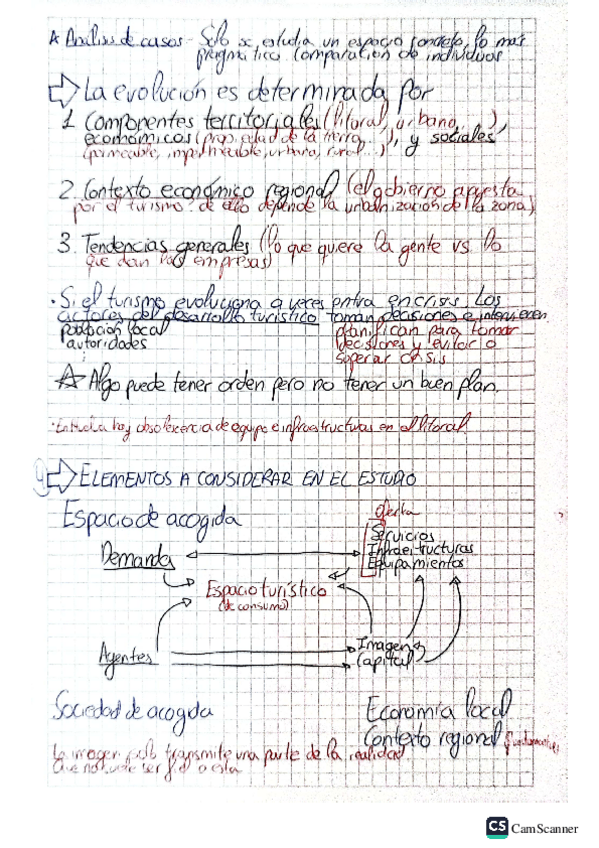 * Análisis de casos - Sólo se estudia un espacio concreto, lo más
pragmático comparación de individuos
⇒ La evolución es determinada por
1. Componentes territoriales (litoral, urbano, ...),
económicos (propiedad de la tierra, ...), y sociales
(permeable, impermeable, urbana, rural...)
2. Contexto económico regional (el gobierno apuesta
por el turismo: de ello depende la urbanización de la zona)
3. Tendencias generales (lo que quiere la gente vs lo
que dan las empresas)
· Si el turismo evoluciona a veces entra en crisis. Los
actores del desarrollo turístico toman decisiones e intervienen
población local
autoridades
planifican para tomar
decisiones y evitar o
superar crisis
☆ Algo puede tener orden pero no tener un buen plan.
hay obsolescencia de equipo e infraestructuras en el litoral
⇒ ELEMENTOS A CONSIDERAR EN EL ESTUDIO
Espacio de acogida
oferta
Servicios
Infraestructuras
Equipamientos
Demanda
Espacio turístico
(de consumo)
Agentes
Imagen y
Capital
Sociedad de acogida
Economía local
Contexto regional
La imagen solo transmite una parte de la realidad
que no
CS CamScanner